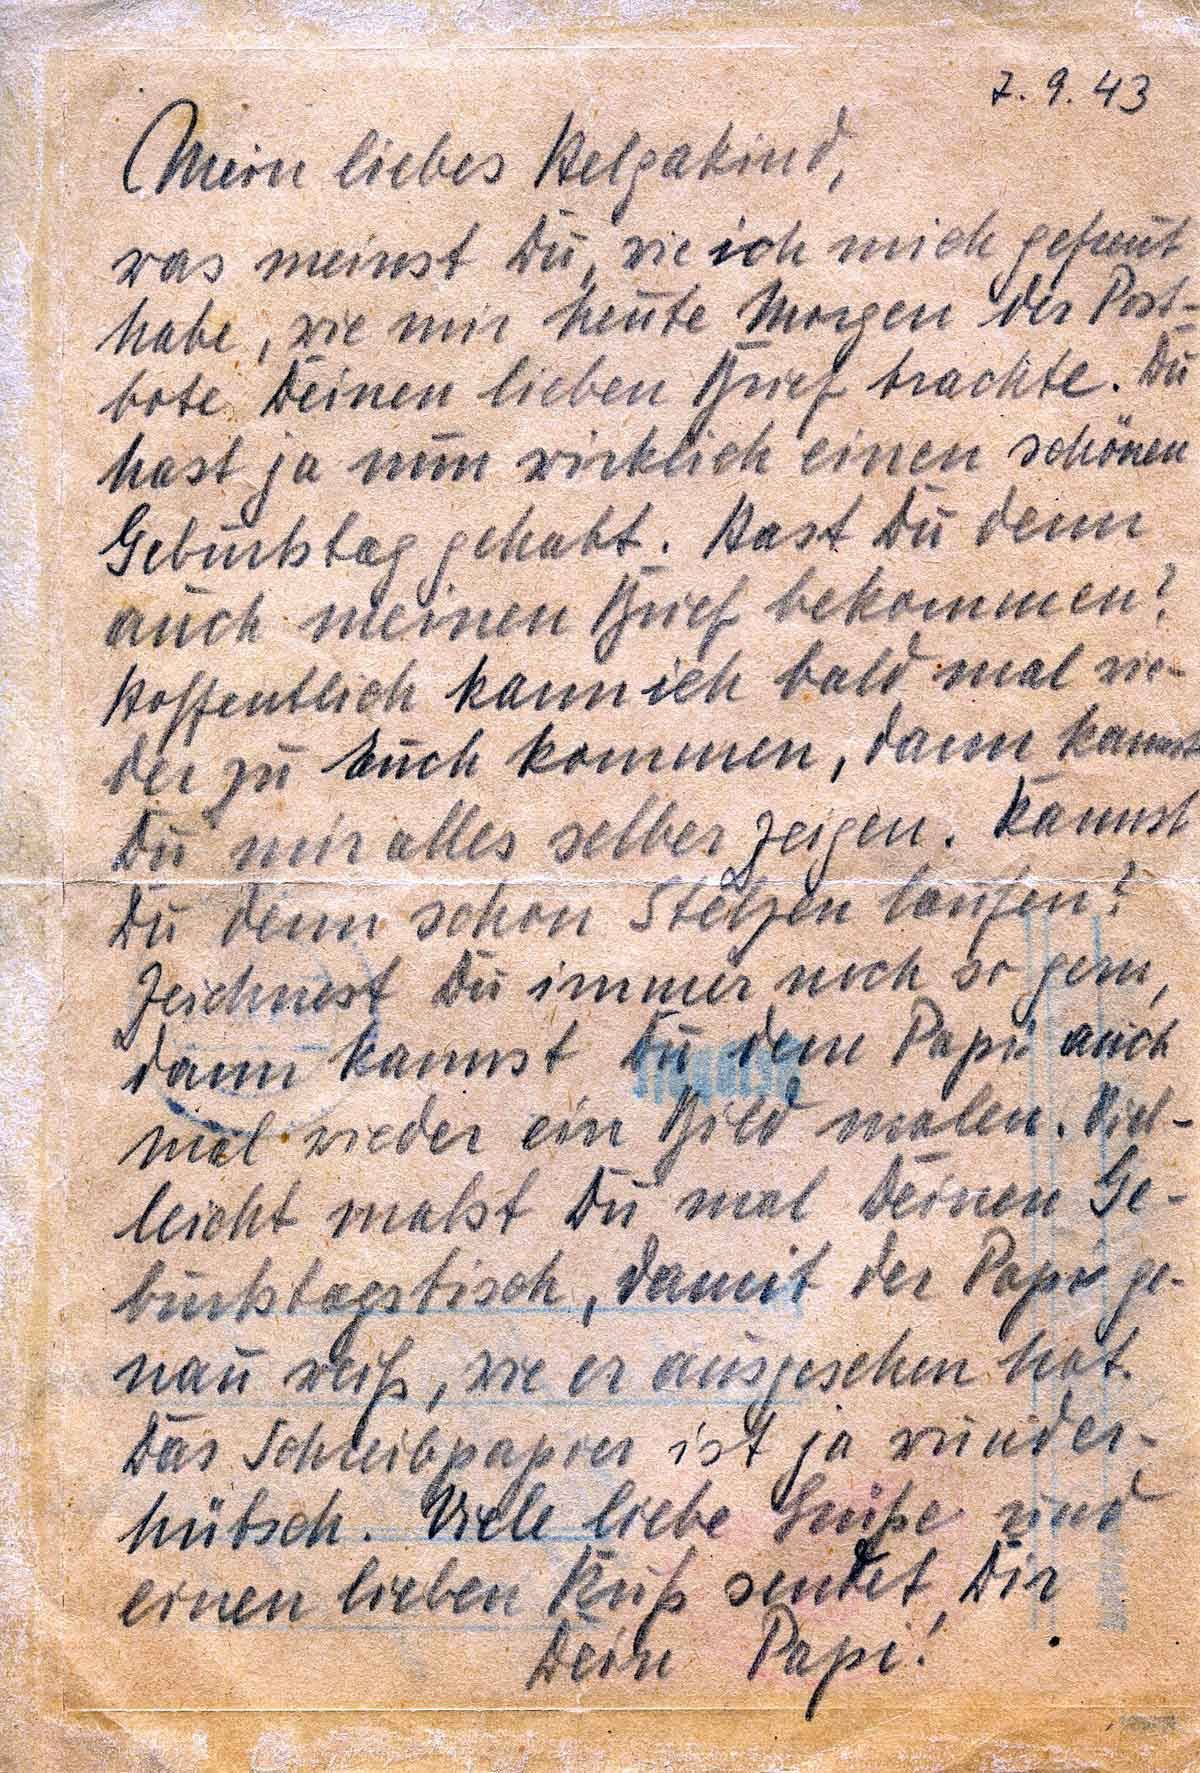 7. 9. 43
Mein liebes Helgakind,
was meinst Du, wie ich mich gefreut
habe, wie mir heute Morgen der Post-
bote Deinen lieben Brief brachte. Du
hast ja nun wirklich einen schönen
Geburtstag gehabt. Hast Du denn
auch meinen Brief bekommen?
Hoffentlich kann ich bald mal wie-
der zu Euch kommen, dann kannst
Du mir alles selber zeigen. Kannst
Du denn schon Stelzen laufen?
Zeichnest Du immer noch so gern,
dann kannst Du dem Papi auch
mal wieder ein Bild malen. Viel-
leicht malst Du mal Deinen Ge-
burtstagstisch, damit der Papi ge-
nau weiß, wie er ausgesehen hat.
Das Schreibpapier ist ja wunder-
hübsch. Viele liebe Grüße und
einen lieben Kuß sendet Dir
Dein Papi!